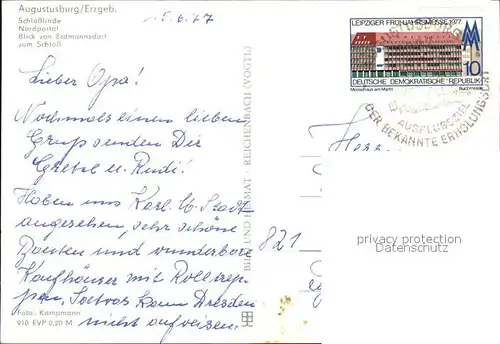 Augustusburg/Erzgeb.
Schloßlinde
Nordportal
Blick von Erdmannsdorf
zum Schloß
15.6.77
Lieber Opa!
Nochmals einen lieben
Gruß senden Dir
Gretel u. Rudi!
Haben uns Karl-M-Stadt
angesehen, sehr schöne
Bauten und wunderbare
Kaufhäuser mit Rolltrep-
pen, Soetwas kann Dresden
nicht aufweisen.
Foto: Kampmann
910 EVP 0,20 M
BILD UND HEIMAT - REICHENBACH (VOGTL)
821
LEIPZIGER FRÜHJAHRSMESSE 1977
10
DEUTSCHE DEMOKRATISCHE REPUBLIK
Messehaus am Markt Buchmesse
AUGUSTUSBURG
AUSFLUGSZIEL
DER BEKANNTE ERHOLUNGSORT
Herr
privacy protection
Datenschutz